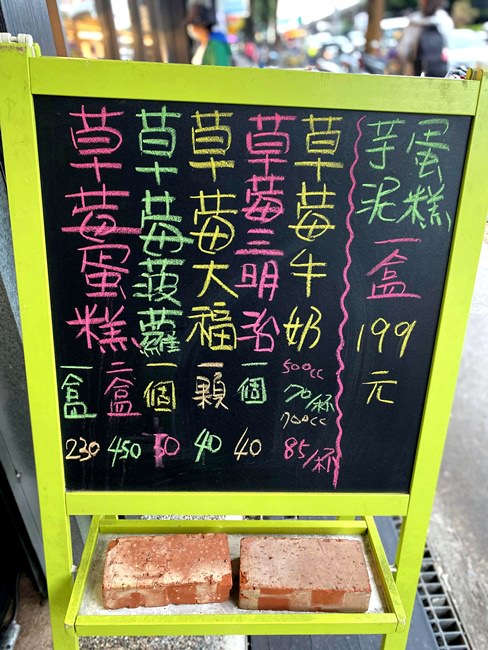 草莓蛋糕
一盒
230
二盒
450
草莓菠蘿
一個
50
草莓大福
一顆
40
草莓三明治
一個
40
草莓牛奶
500cc
70/杯
700cc
85/杯
芋泥
蛋糕
一盒
199
元